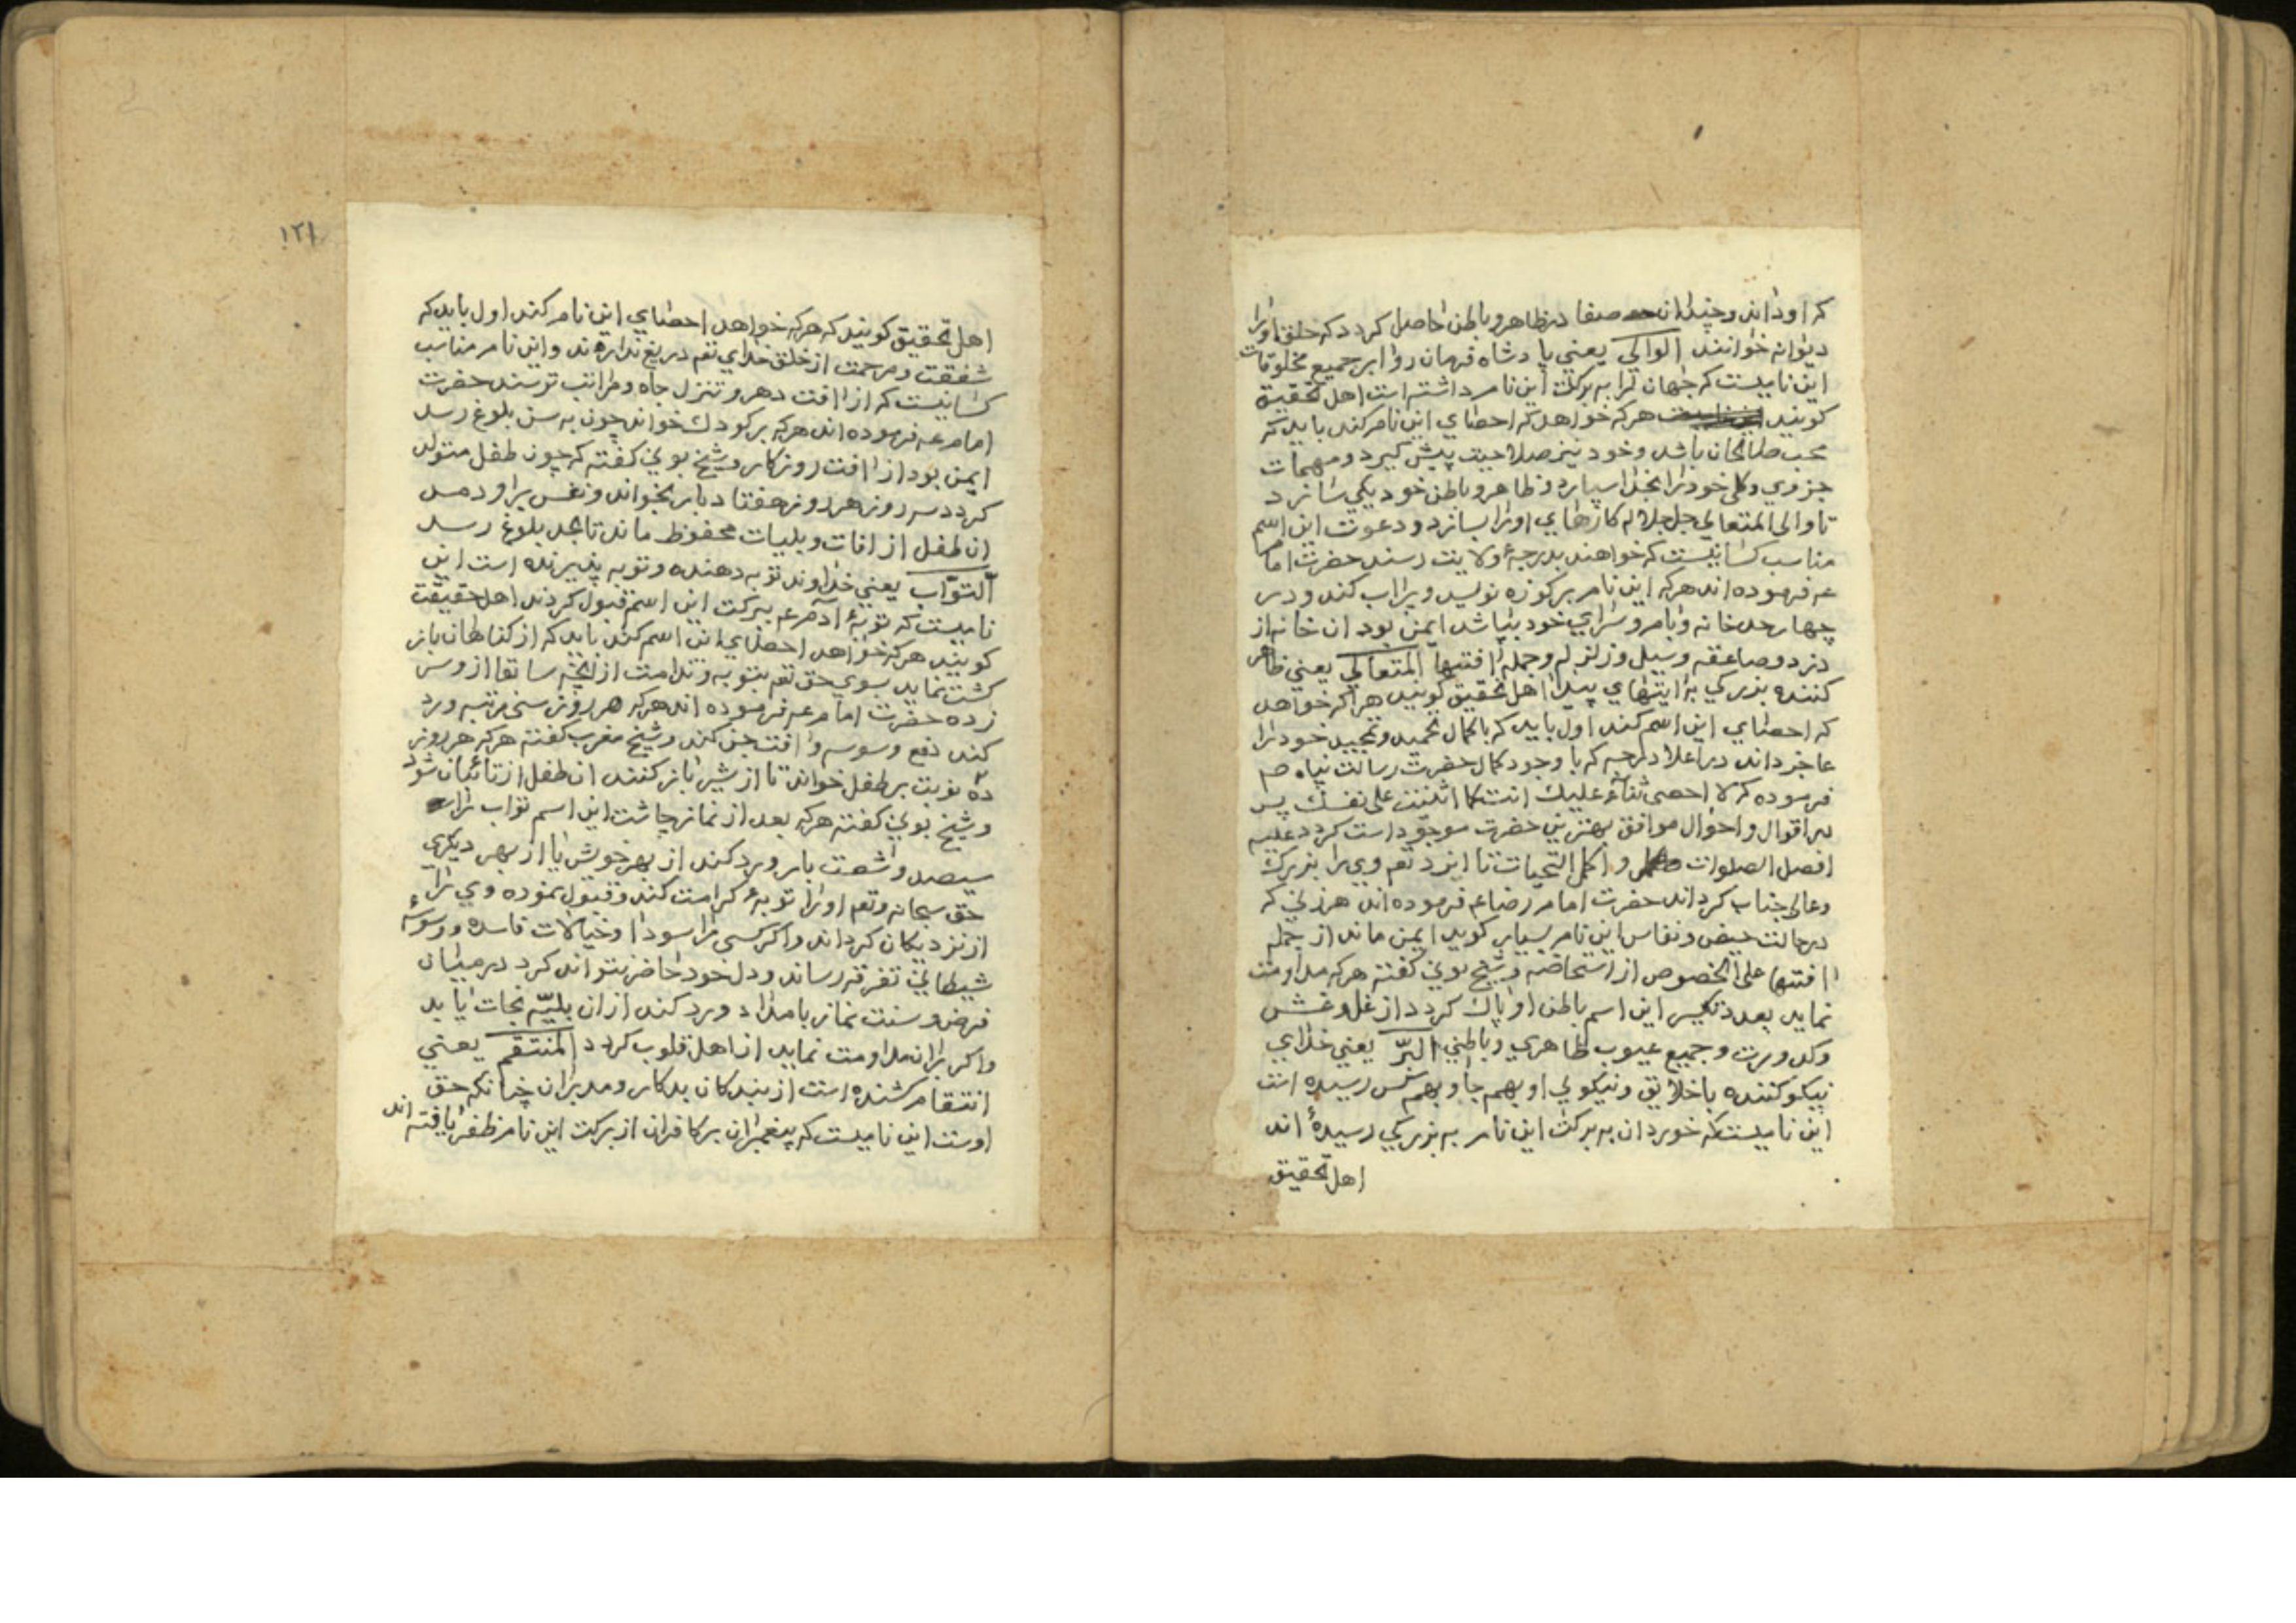 که او داند و چندان صفا در ظاهر و باطن حاصل کردد که خلق او را
دیوانه خوانند الوالی یعنی پادشاه فرمان روا بر جمیع مخلوقات
این نامیست که جهان را به برکت این نام داشته است اهل تحقیق
کویند هرکه خواهد که احصای این نام کند باید که
محب صالحان باشد و خود نیز صلاحیت پیش کیرد و مهمات
جزوی و کلی خود را بخدا سپارد و ظاهر و باطن خود یکی سازد
تا والی المتعالی جل جلاله کارهای او را بسازد و دعوت این اسم
مناسب کسانیست که خواهند بدرجهٔ ولایت رسند حضرت امام
عه فرموده اند هرکه این نام بر کوزه نویسد و پر اب کند و در
چهار حد خانه و بام و سرای خود بپاشد ایمن بود ان خانه از
دزد و صاعقه و سیل و زلزله و جملهٔ افتها المتعالی یعنی ظاهر
کننده بزرکی به ایتهای پیدا اهل تحقیق کویند هر اکه خواهد
که احصای این اسم کند اول باید که با کمال تحمید و تمجید خود را
عاجز داند در اعلا درجه که با وجود کمال حضرت رسالت پناه صم
فرموده که لا احصی ثناء علیك انت کما اثنیت علی نفسك پس
در اقوال و احوال موافق بهترین حضرت موجودات کردد علیه
افضل الصلوات و اکمل التحیات تا ایزد تعم وی را بزرك
و عالی جناب کرداند حضرت امام رضا عه فرموده اند هر زنی که
در حالت حیض و نفاس این نام بسیار کوید ایمن ماند از جمله
افتها علی الخصوص از استحاضه و شیخ بونی کفته هرکه مداومت
نماید بعدد تکسیر این اسم باطن او پاك کردد از غل و غش
و کدورت و جمیع عیوب ظاهری و باطنی البرّ یعنی خدای
نیکو کننده با خلایق و نیکویی او بهم جا و بهم کس رسیده است
این نامیست که خوردان به برکت این نام به بزرکی رسیدهٔ اند
اهل تحقیق
۱۲۱
اهل تحقیق کویند که هرکه خواهد احصای این نام کند اول باید که
شفقت و مرحمت از خلق خدای تعم دریغ ندارد و این نام مناسب
کسانیست که از افت دهر و تنزل جاه و مراتب ترسند حضرت
امام عه فرموده اند هرکه بر کودك خواند چون به سن بلوغ رسد
ایمن بود از افت روزکار و شیخ بونی کفته که چون طفل متولد
کردد سه روز هر روز هفتاد بار بخواند و نفس بر او دمد
ان طفل از افات و بلیات محفوظ ماند تا بحد بلوغ رسد
التوّاب یعنی خداوند توبه دهنده و توبه پذیرنده است این
نامیست که توبهٔ آدم عه ببرکت این اسم قبول کردند اهل حقیقت
کویند هرکه خواهد احصای این اسم کند باید که از کناهان باز
کشت نماید بسوی حق تعم بتوبه و ندامت از انچه سابقا از و سر
زده حضرت امام عه فرموده اند هرکه هر روز سی مرتبه ورد
کند دفع وسوسه و افت جن کند و شیخ مغرب کفته هرکه هر روز
ده نوبت بر طفل خواند تا از شیر باز کنند ان طفل از تائبان شود
و شیخ بونی کفته هرکه بعد از نماز چاشت این اسم تواب را
سیصد و شصت بار ورد کند از بهر خویش یا از بهر دیکری
حق سبحانه و تعم او را توبهٔ کرامت کند و قبول نموده وی را
از نزدیکان کرداند و اکر کسی را سودا و خیالات فاسده و وسوسهٔ
شیطانی تفرقه رساند و دل خود حاضر نتواند کرد در میان
فرض و سنت نماز بامداد ورد کند از ان بلیّه نجات یابد
و اکر بران مداومت نماید از اهل قلوب کردد المنتقم یعنی
انتقام کشنده است از بندکان بدکار و مدبران چنانکه حق
اوست این نامیست که پیغمبران بر کافران از برکت این نام ظفر یافته اند